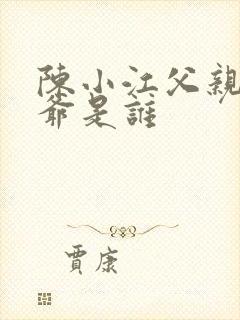 陳小江父親
爺是誰
賈康